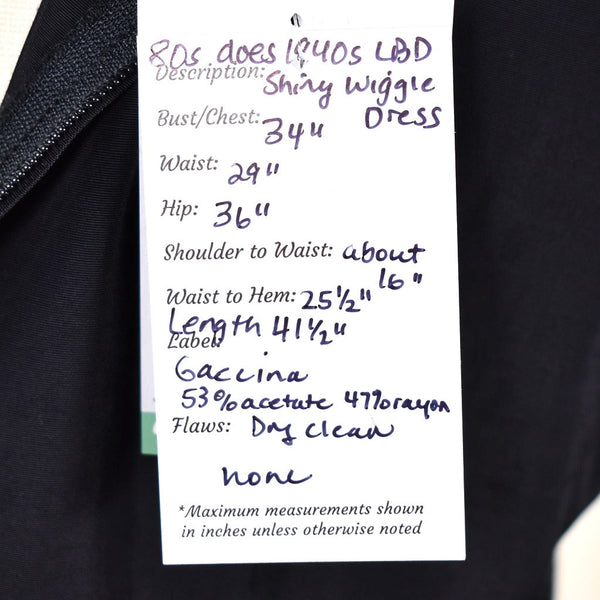 80s does 1940s LBD
Description: Shiny Wiggle
Dress
Bust/Chest: 34"
Waist: 29"
Hip: 36"
Shoulder to Waist: about
16"
Waist to Hem: 25½"
Length 41½"
Label:
Gaccina
53% acetate 47% rayon
Flaws: Dry clean
none
*Maximum measurements shown
in inches unless otherwise noted